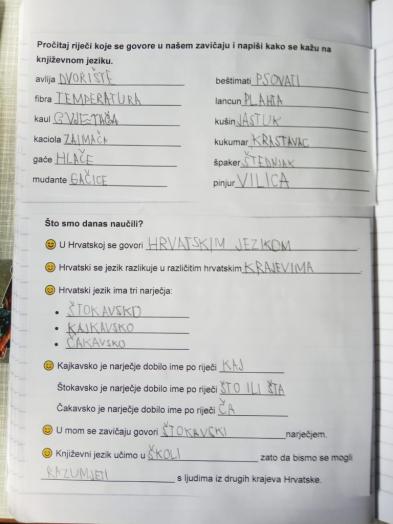 Pročitaj riječi koje se govore u našem zavičaju i napiši kako se kažu na
književnom jeziku.
avlija DVORIŠTE
beštimati PSOVATI
fibra TEMPERATURA
lancun PLAHTA
kaul CVJETAČA
kušin JASTUK
kaciola ZAIMAČA
kukumar KRASTAVAC
gaće HLAČE
špaker ŠTEDNJAK
mudante GAĆICE
pinjur VILICA
Što smo danas naučili?
U Hrvatskoj se govori HRVATSKIM JEZIKOM.
Hrvatski se jezik razlikuje u različitim hrvatskim KRAJEVIMA.
Hrvatski jezik ima tri narječja:
• ŠTOKAVSKO
• KAJKAVSKO
• ČAKAVSKO
Kajkavsko je narječje dobilo ime po riječi KAJ
Štokavsko je narječje dobilo ime po riječi ŠTO ILI ŠTA
Čakavsko je narječje dobilo ime po riječi ČA
U mom se zavičaju govori ŠTOKAVSKI narječjem.
Književni jezik učimo u ŠKOLI zato da bismo se mogli
RAZUMJETI s ljudima iz drugih krajeva Hrvatske.